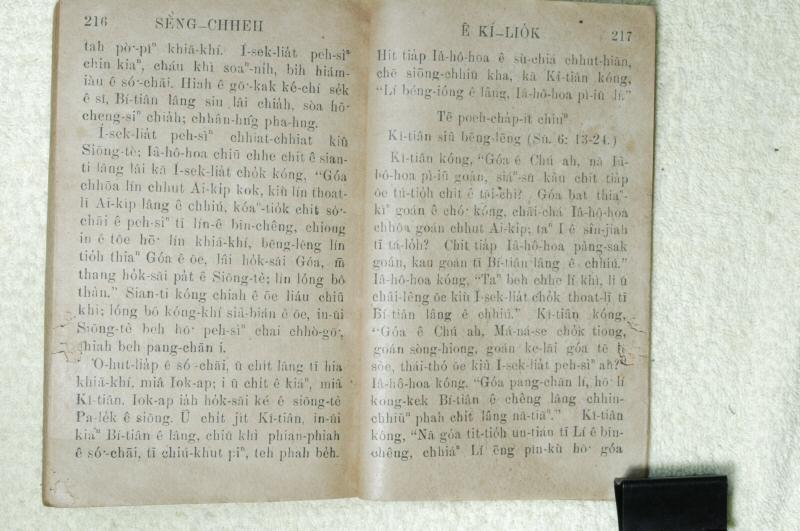 216 SÈNG–CHHEH
tah pò·-pîⁿ khiā-khí. I-sek-lia̍t peh-sìⁿ
chin kiaⁿ, cháu khì soaⁿ-nih, bih hiám-
iàu ê só·-chāi. Hiah ê gō·-kak ké-chí se̍k
ê sî, Bí-tiân lâng sin lâi chia̍h, sòa hō·
cheng-siⁿ chia̍h; chhân-hn̂g pha-hng.
I-sek-lia̍t peh-sìⁿ chhiat-chhiat kiû
Siōng-tè; Iâ-hô-hoa chiū chhe chi̍t ê sian-
ti lâng lâi kā I-sek-lia̍t cho̍k kóng, “Góa
chhōa lín chhut Ai-ki̍p kok, kiù lín thoat-
lī Ai-ki̍p lâng ê chhiú, kóaⁿ-tio̍k chit só·-
chāi ê peh-sìⁿ tī lín-ê bīn-chêng, chiong
in ê tōe hō· lín khiā-khí, bēng-lēng lín
tio̍h thiaⁿ Góa ê ōe, lâi ho̍k-sāi Góa, m̄
thang ho̍k-sāi pa̍t ê Siōng-tè; lín lóng bô
thàn.” Sian-ti kóng chiah ê ōe liáu chiū
khì; lóng bô kóng-khí siá-biān ê ōe, in-ūi
Siōng-tè beh hō· peh-sìⁿ chai chhò-gō·,
chiah beh pang-chān i.
O-hut-lia̍p ê só·-chāi, ū chi̍t lâng tī hia
khiā-khí, miâ Iok-ap; i ū chi̍t ê kiáⁿ, miâ
Kí-tiân. Iok-ap ia̍h ho̍k-sāi ké ê siōng-tè
Pa-le̍k ê siōng. Ū chi̍t ji̍t Kí-tiân, in-ūi
kiaⁿ Bí-tiân ê lâng, chiū khì phian-phiah
ê só·-chāi, tī chiú-khut piⁿ, teh phah be̍h.
Ê KÍ–LIO̍K 217
Hit tia̍p Iâ-hô-hoa ê sù-chiá chhut-hiān,
chē siōng-chhiū kha, kā Kí-tiân kóng,
“Lí béng-ióng ê lâng, Iâ-hô-hoa pì-iū lí.”
Tē poeh-cha̍p-it chiuⁿ.
Kí-tiân siū bēng-lēng (Sū. 6: 13-24.)
Kí-tiân kóng, “Góa ê Chú ah, nā Iâ-
hô-hoa pì-iū goán, siáⁿ-sū kàu chit tia̍p
ōe tú-tio̍h chit ê tāi-chì? Góa bat thiaⁿ-
kìⁿ goán ê chó· kóng, chāi-chá Iâ-hô-hoa
chhōa goán chhut Ai-ki̍p; taⁿ I ê sîn-jiah
tī tá-lo̍h? Chit tia̍p Iâ-hô-hoa pàng-sak
goán, kau goán tī Bí-tiân lâng ê chhiú.”
Iâ-hô-hoa kóng, “Taⁿ beh chhe lí khì, lí ū
châi-lêng ōe kiù I-sek-lia̍t cho̍k thoat-lī tī
Bí-tiân lâng ê chhiú.” Kí-tiân kóng,
“Góa ê Chú ah, Má-ná-se cho̍k tiong,
goán sòng-hiong, goán ke-lāi góa tē it
sòe, thái-thó ōe kiù I-sek-lia̍t peh-sìⁿ ah?”
Iâ-hô-hoa kóng. “Góa pang-chān lí, hō· lí
kong-kek Bí-tiân ê chêng lâng chhin-
chhiūⁿ phah chi̍t lâng nā-tiāⁿ.” Kí-tiân
kóng, “Nā góa tit-tio̍h un-tián tī Lí ê bīn-
chêng, chhiáⁿ Lí ēng pîn-kù hō· góa